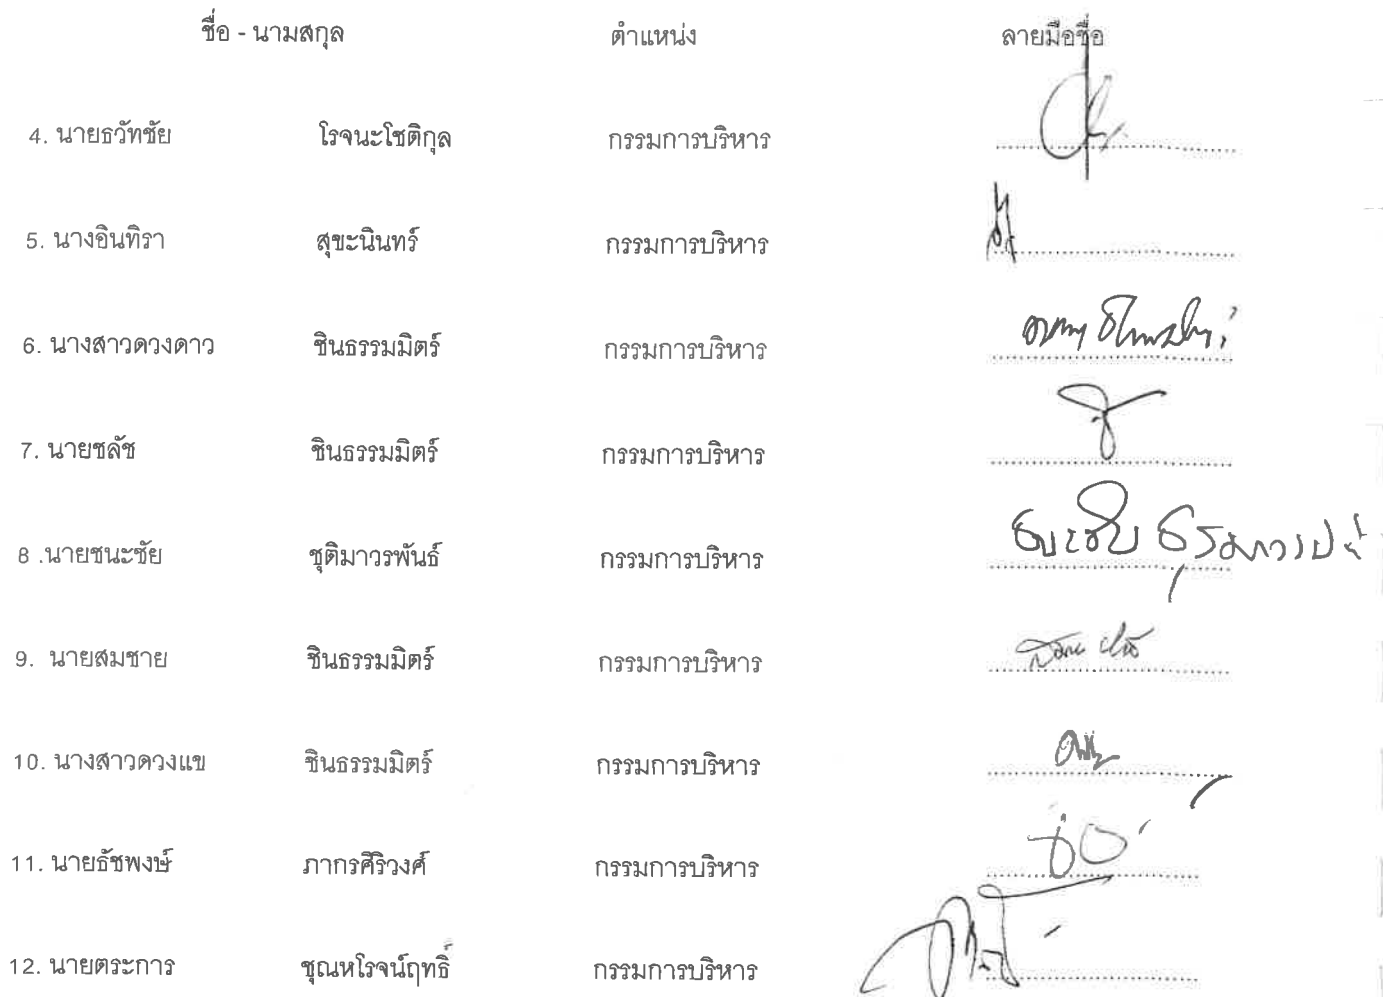 ชื่อ - นามสกุล ตำแหน่ง ลายมือชื่อ
4. นายธวัทชัย โรจนะโชติกุล กรรมการบริหาร
5. นางอินทิรา สุขะนินทร์ กรรมการบริหาร
6. นางสาวดวงดาว ชินธรรมมิตร์ กรรมการบริหาร
7. นายชลัช ชินธรรมมิตร์ กรรมการบริหาร
8 .นายชนะชัย ชุติมาวรพันธ์ กรรมการบริหาร
9. นายสมชาย ชินธรรมมิตร์ กรรมการบริหาร
10. นางสาวดวงแข ชินธรรมมิตร์ กรรมการบริหาร
11. นายธัชพงษ์ ภากรศิริวงศ์ กรรมการบริหาร
12. นายตระการ ชุณหโรจน์ฤทธิ์ กรรมการบริหาร